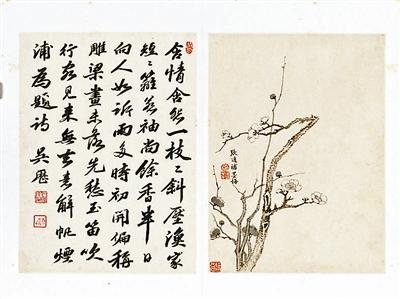 含情含態一枝〻斜壓漁家
短〻籬惹袖尚餘香半日
向人如訴雨多時初開偏稱
雕梁畫未落先愁玉笛吹
行客見來無去意解帆煙
浦為題詩 吳歷